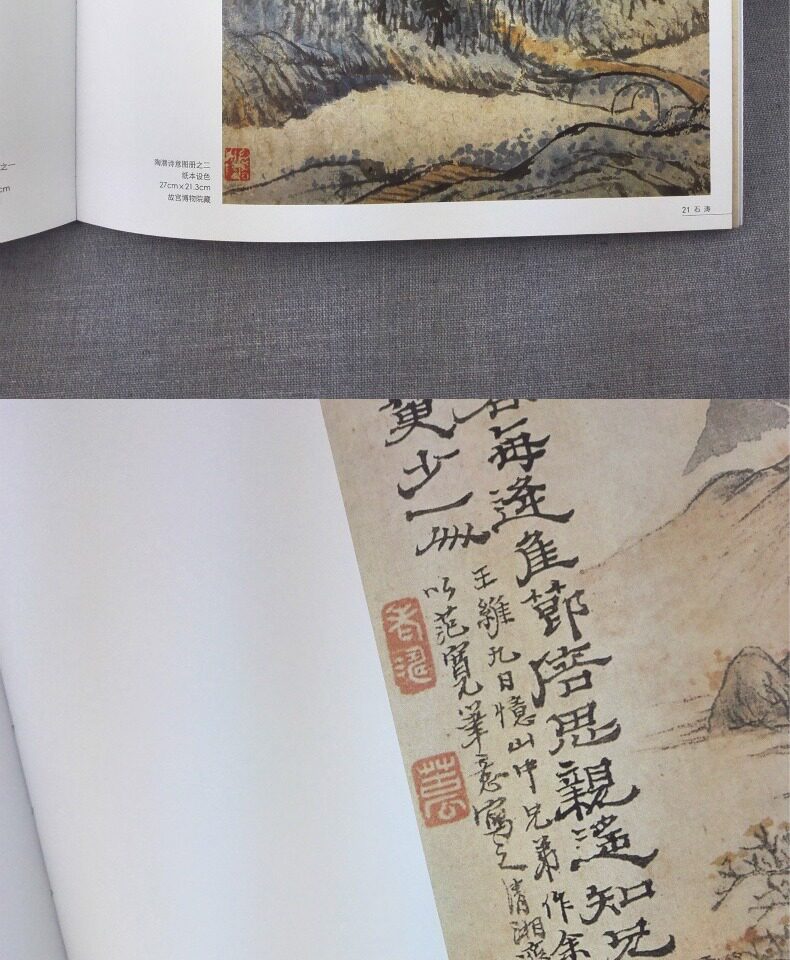 之一
cm
陶潜诗意图册之二
纸本设色
27cm×21.3cm
故宫博物院藏
21 石涛
每逢佳節倍思親遙知兄
少一
王維九日憶山中兄弟作余
以范寬筆意寫之清湘